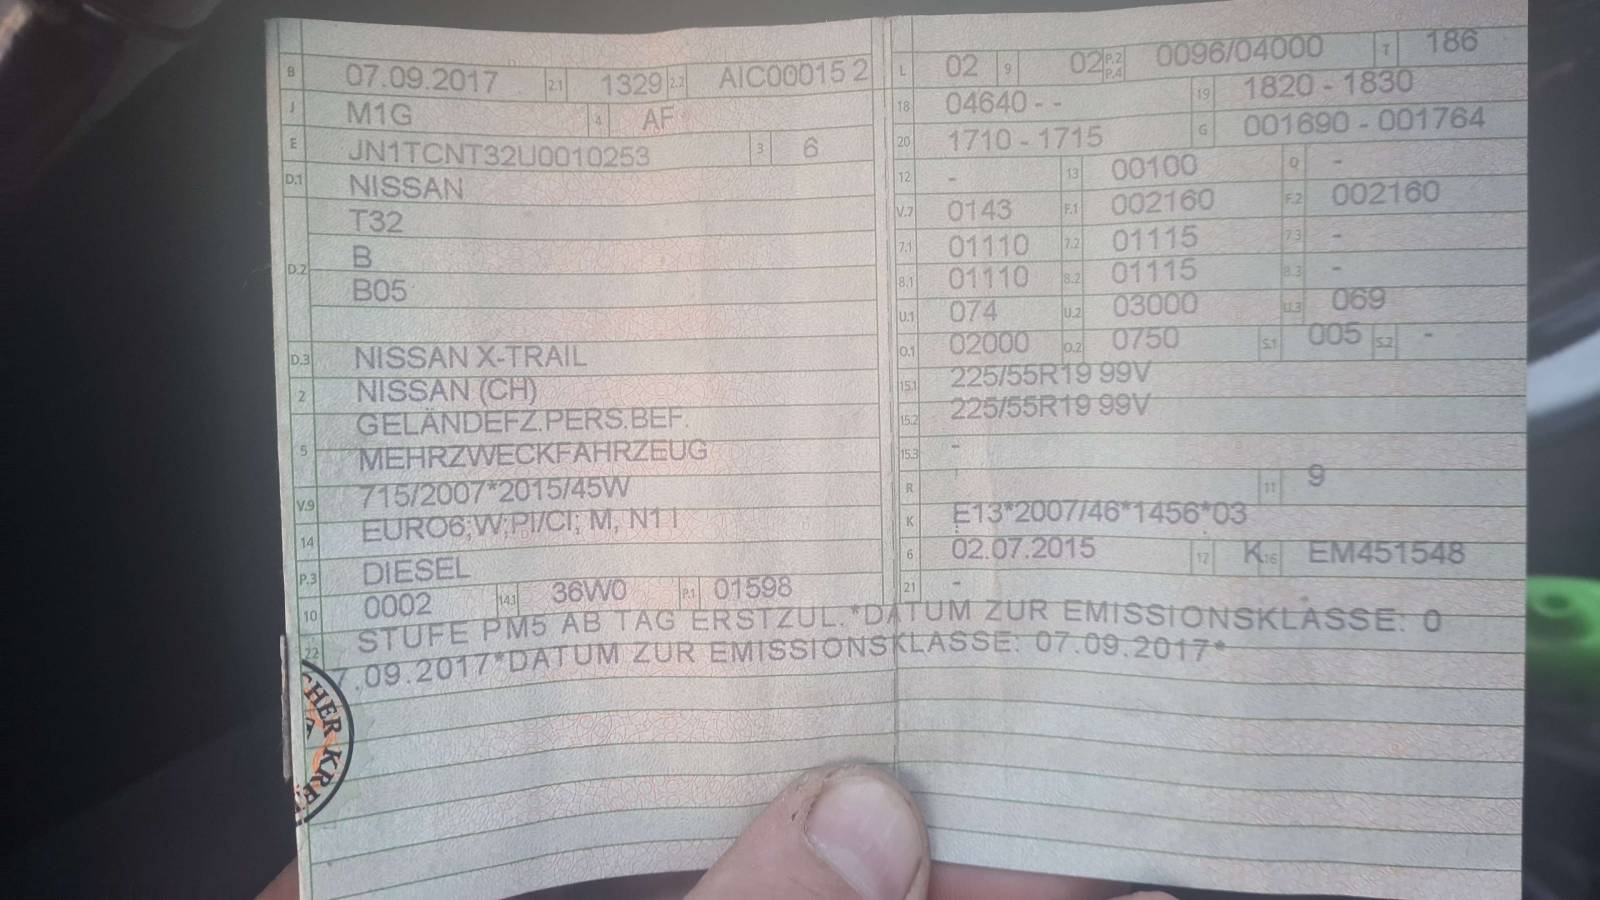 B 07.09.2017 2.1 1329 2.2 AIC00015 2
J M1G 4 AF
E JN1TCNT32U0010253 3 6
D.1 NISSAN
T32
D.2 B
B05
D.3 NISSAN X-TRAIL
2 NISSAN (CH)
GELÄNDEFZ.PERS.BEF.
5 MEHRZWECKFAHRZEUG
V.9 715/2007*2015/45W
14 EURO6;W;PI/CI; M, N1 I
P.3 DIESEL
10 0002 14.1 36W0 P.1 01598
L 02 9 02 P.2 P.4 0096/04000 T 186
18 04640 - - 19 1820 - 1830
20 1710 - 1715 G 001690 - 001764
12 - 13 00100 Q -
V.7 0143 F.1 002160 F.2 002160
7.1 01110 7.2 01115 7.3 -
8.1 01110 8.2 01115 8.3 -
U.1 074 U.2 03000 U.3 069
O.1 02000 O.2 0750 S.1 005 S.2 -
15.1 225/55R19 99V
15.2 225/55R19 99V
15.3 -
R 11 9
K E13*2007/46*1456*03
6 02.07.2015 17 K 16 EM451548
21 -
22 STUFE PM5 AB TAG ERSTZUL.*DATUM ZUR EMISSIONSKLASSE: 0
7.09.2017*DATUM ZUR EMISSIONSKLASSE: 07.09.2017*